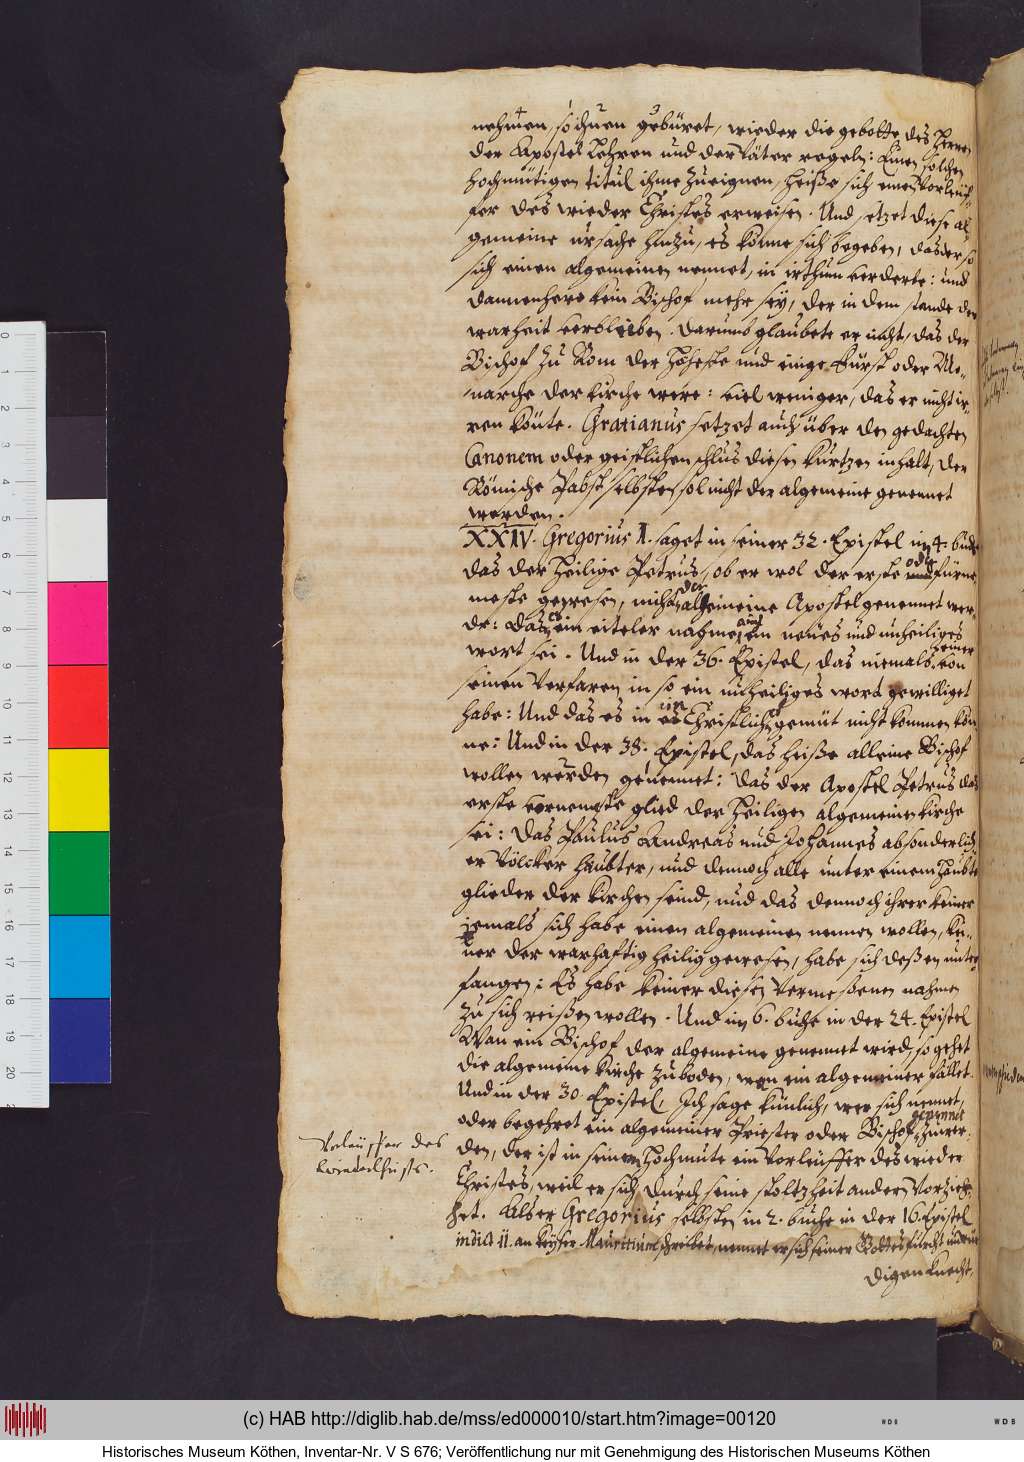 nehmen, so ihnen gebüret, wieder die gebotte des Herren
der Apostel Lehren und der Väter regeln: Einen solchen
hochmütigen titul ihme zueignen, heiße sich einen Vorleuf-
fer des wieder Christes erweisen. Und setzet diese al-
gemeine ursache hinzu, es könne sich begeben, das der so
sich einen algemeinen nennet, in irthum verderbe: und
dannenhero kein Bischof mehr sey, der in dem stande der
warheit verbleiben. Darumb glaubete er nicht, das der
Bischof zu Rom der höheste und einige Fürst oder Mo-
narche der kirche were: viel weniger, das er nicht ir-
ren könte. Gratianus setzet auch über den gedachten
Canonem oder geistlichen schlus diesen kurtzen inhalt, der
Römische Pabst selbsten sol nicht der algemeine genennet
werden.
XXIV. Gregorius I. saget in seiner 32. Epistel im 4. buche
das der heilige Petrus, ob er wol der erste oder fürne
meste gewesen, nicht der algemeine Apostel genennet wer-
de: das es ein eiteler nahme, auch ein neues und unheiliges
wort sei. Und in der 36. Epistel, das niemals keiner von
seinen Verfaren in so ein unheiliges wort gewilliget
habe: Und das es in ein Christliches gemüt nicht kommen kön
ne: Und in der 38. Epistel, das heiße alleine Bischof
wollen werden genennet: das der Apostel Petrus das
erste vornemste glied der heiligen algemeinen kirche
sei: das Paulus Andreas und Johannes absonderlich
er Völcker häubter, und dennoch alle unter einem häubte
glieder der kirchen seind, und das dennoch ihrer keiner
iemals sich habe einen algemeinen nennen wollen, kei-
ner der warhaftig heilig gewesen, habe sich deßen unter-
fangen: Es habe keiner diesen vermeßenen nahmen
zu sich reißen wollen. Und im 6. buche in der 24. Epistel
Wan ein Bischof der algemeine genennet wird, so gehet
die algemeine kirche zu boden, wan ein algemeiner fället.
Und in der 30. Epistel, Ich sage künlich, wer sich nennet,
oder begehret ein algemeiner Priester oder Bischof genennet zu wer-
den, der ist in seinem hochmute ein Vorleuffer des wieder
Christes, weil er sich durch seine stoltzheit andern Vorzie-
het. Als er Gregorius selbsten in 2. buche in der 16. Epistel
indict 11. an keyser Mauritium schreibet, nennet er sich seiner Gottesfurcht
digen knecht,
Vorleuffer des
wiederchrists.
(c) HAB http://diglib.hab.de/mss/ed000010/start.htm?image=00120
Historisches Museum Köthen, Inventar-Nr. V S 676; Veröffentlichung nur mit Genehmigung des Historischen Museums Köthen